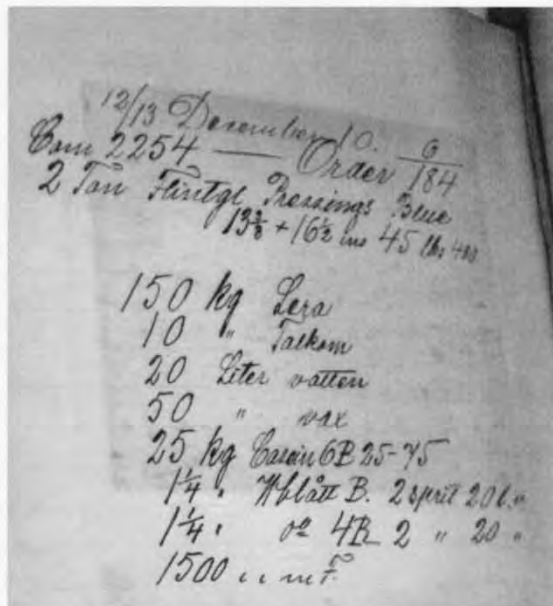 12/13 December 10. 6/184
Com 2254 — Order
2 Ton Flintgl Pressings Blue
13 3/8 + 16 1/2 ins 45 lbs 480
150 kg Lera
10 " Talkum
20 Liter vatten
50 " vax
25 kg Casein 6B 25-75
1 1/4 " Wblått B. 2 sprit 20 l. "
1 1/4 " do 4B 2 " 20 "
1500